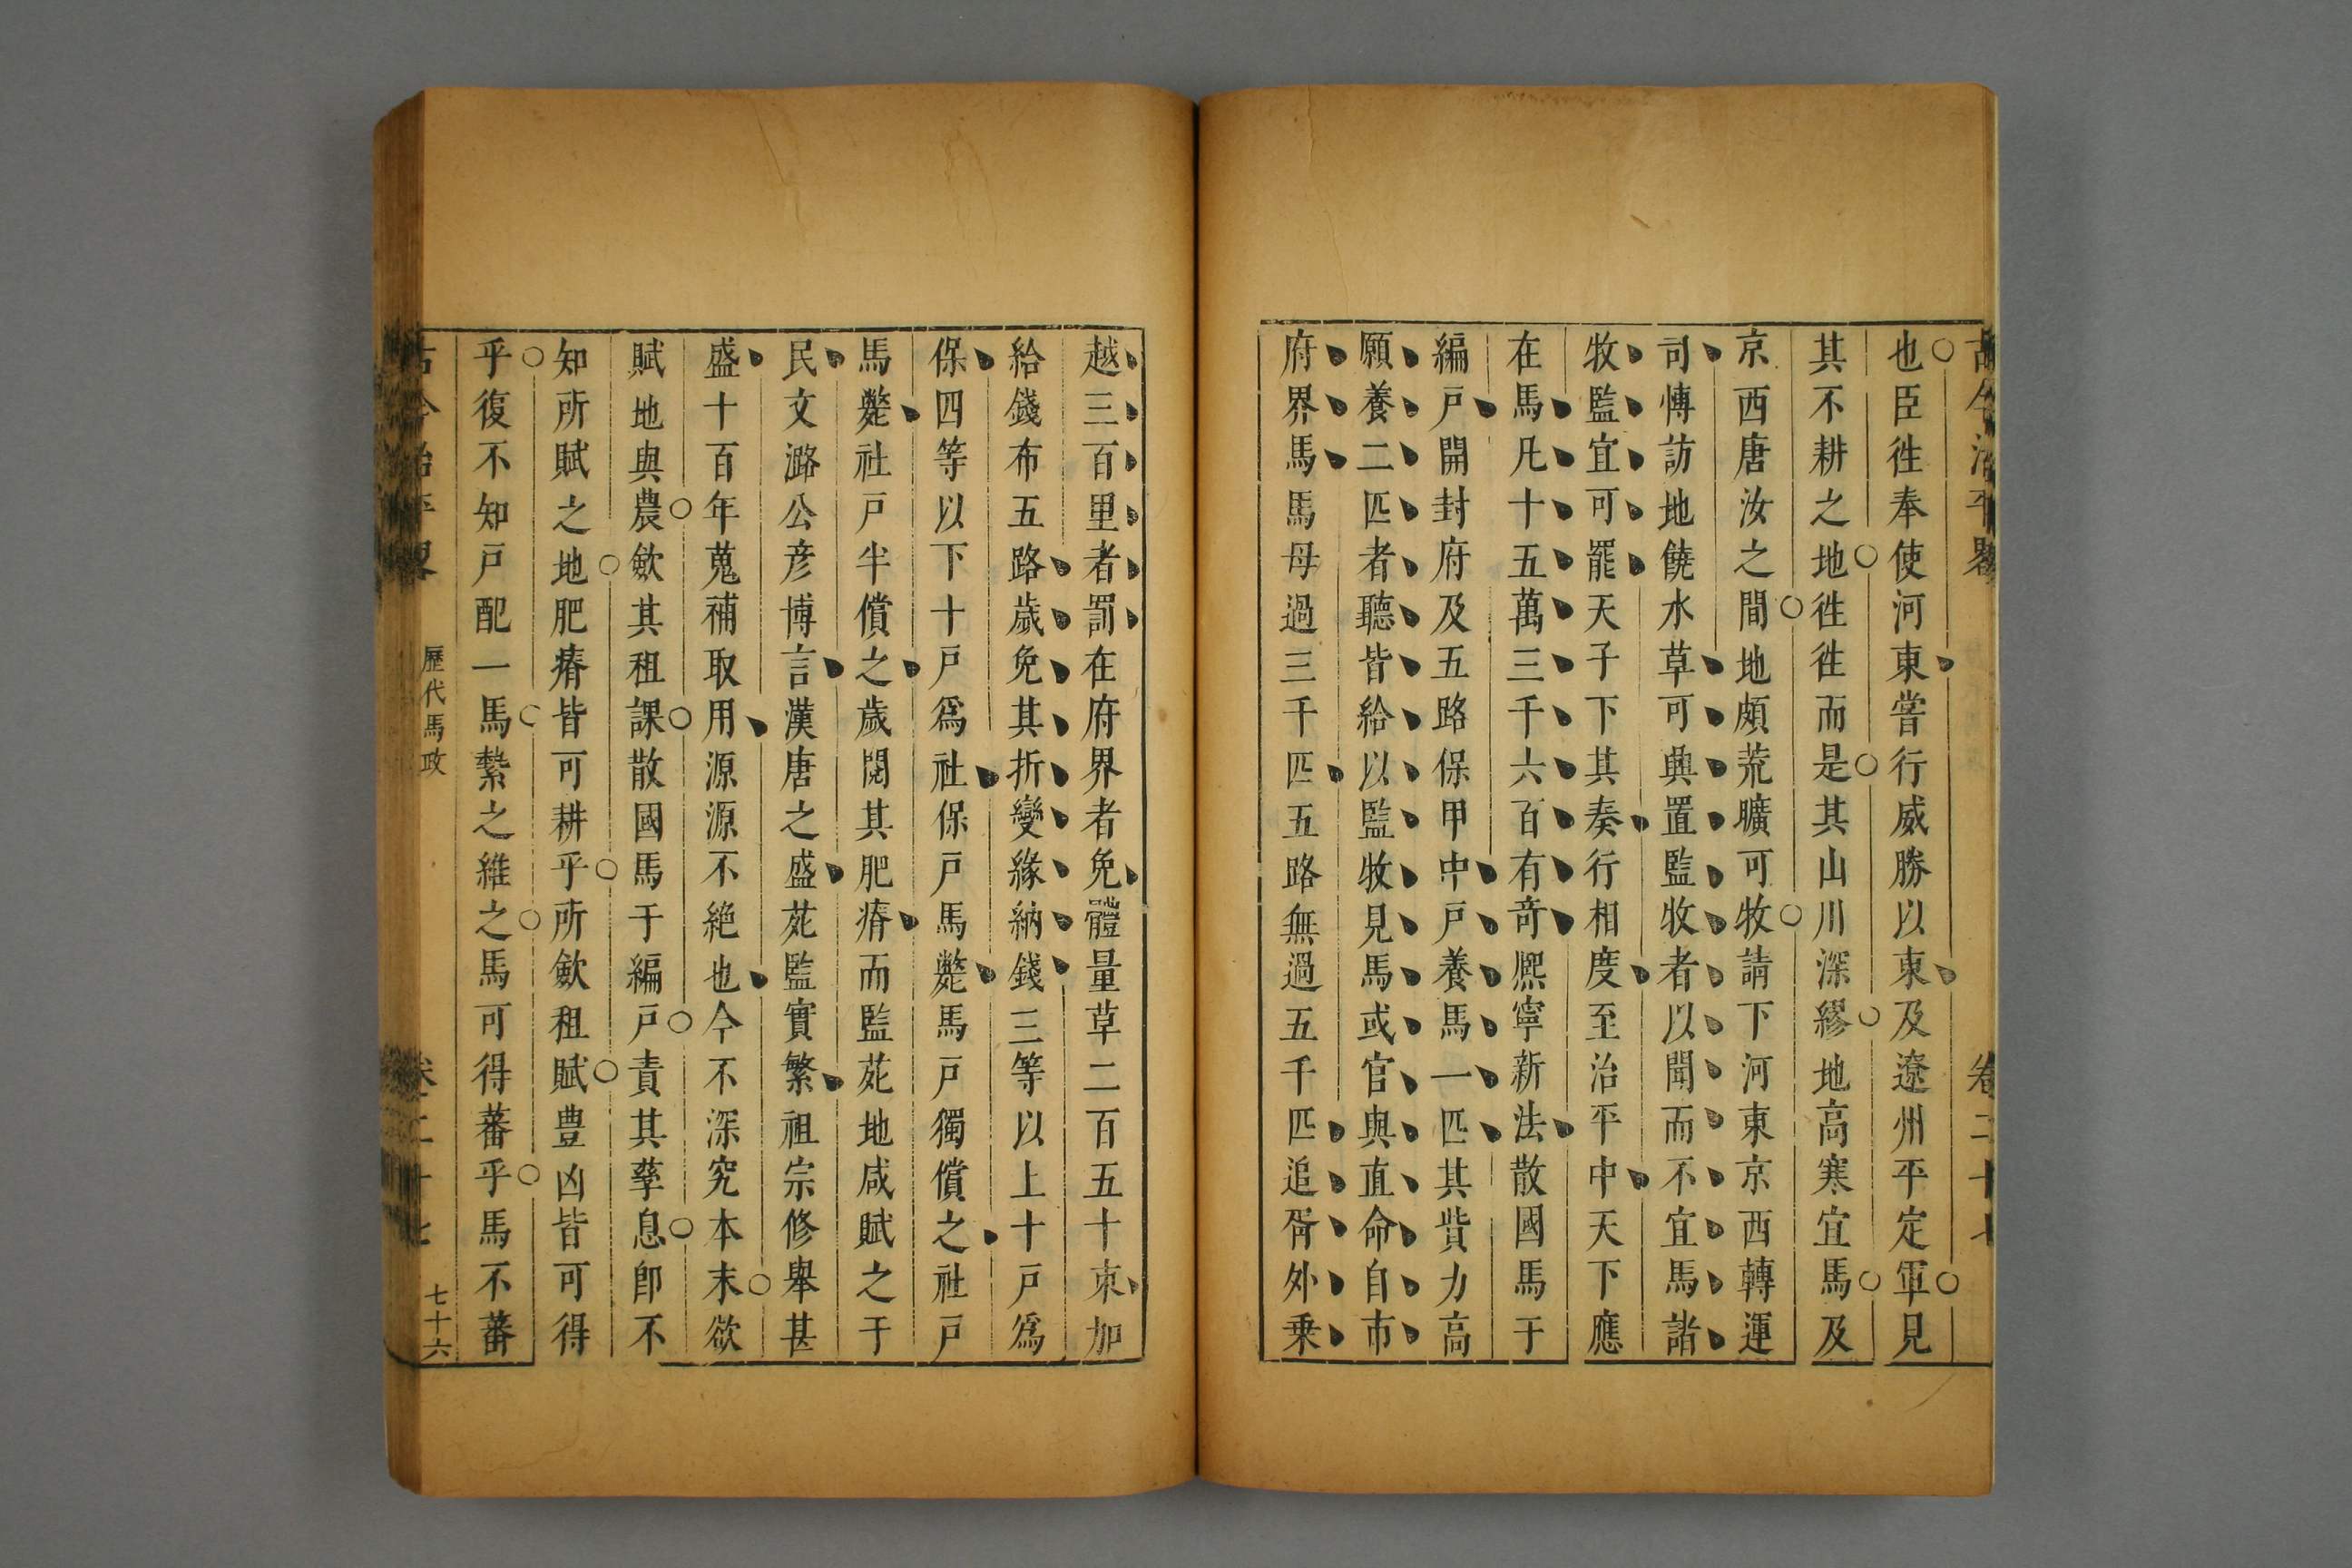 古今治平畧 卷二十七
也臣徃奉使河東嘗行威勝以東及遼州平定軍見
其不耕之地徃徃而是其山川深繆地高寒宜馬及
京西唐汝之間地頗荒曠可牧請下河東京西轉運
司愽訪地饒水草可興置監牧者以聞而不宜馬諸
牧監宜可罷天子下其奏行相度至治平中天下應
在馬凡十五萬三千六百有奇熈寧新法散國馬于
編戸開封府及五路保甲中戸養馬一匹其貲力高
願養二匹者聽皆給以監牧見馬或官與直命自市
府界馬馬母過三千匹五路無過五千匹追胥外乗
越三百里者罰在府界者免體量草二百五十束加
給錢布五路歲免其折變緣納錢三等以上十戸爲
保四等以下十戸爲社保戸馬斃馬戸獨償之社戸
馬斃社戸半償之歲閱其肥瘠而監苑地咸賦之于
民文潞公彦博言漢唐之盛苑監實繁祖宗修舉甚
盛十百年蒐補取用源源不絶也今不深究本末欲
賦地與農斂其租課散國馬于編戸責其孳息卽不
知所賦之地肥瘠皆可耕乎所斂租賦豊凶皆可得
乎復不知戸配一馬縶之維之馬可得蕃乎馬不蕃
古今治平畧 歷代馬政 卷二十七 七十六